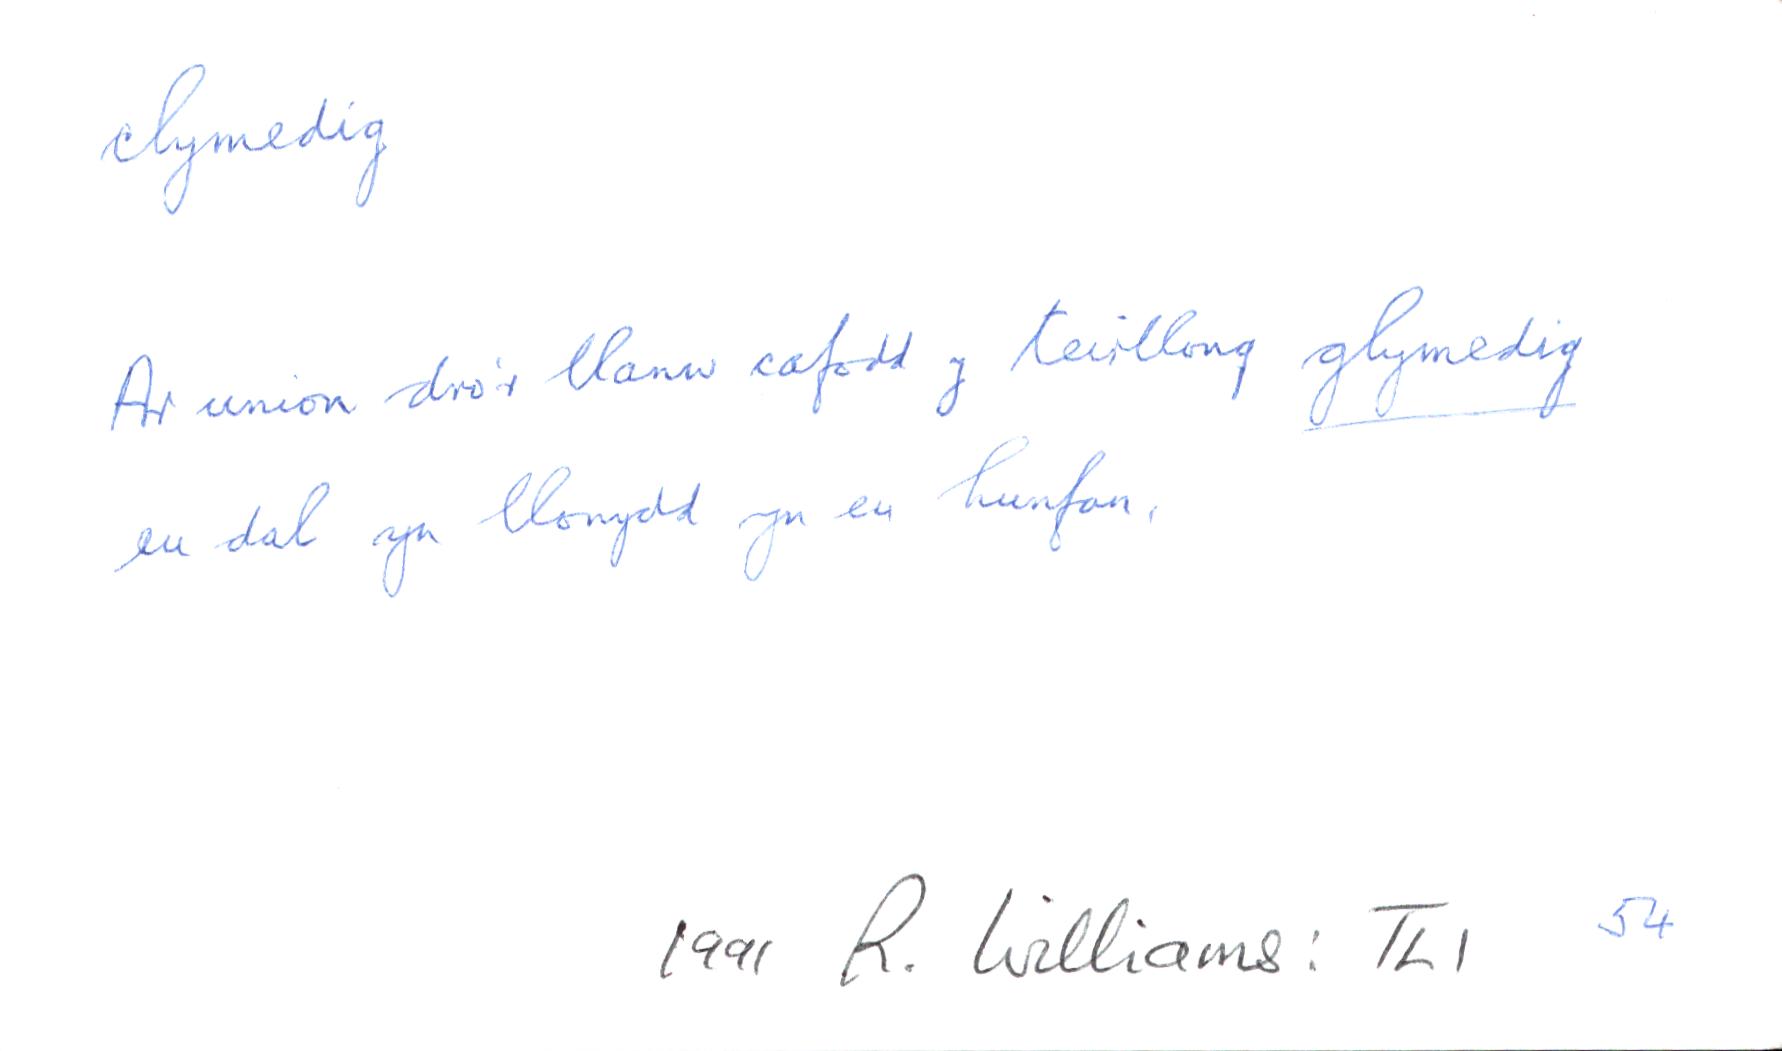 clymedig
Ar union dro'r llanw cafodd y teirllong glymedig
eu dal yn llonydd yn eu hunfan.
1991 R. Williams: TLl 54